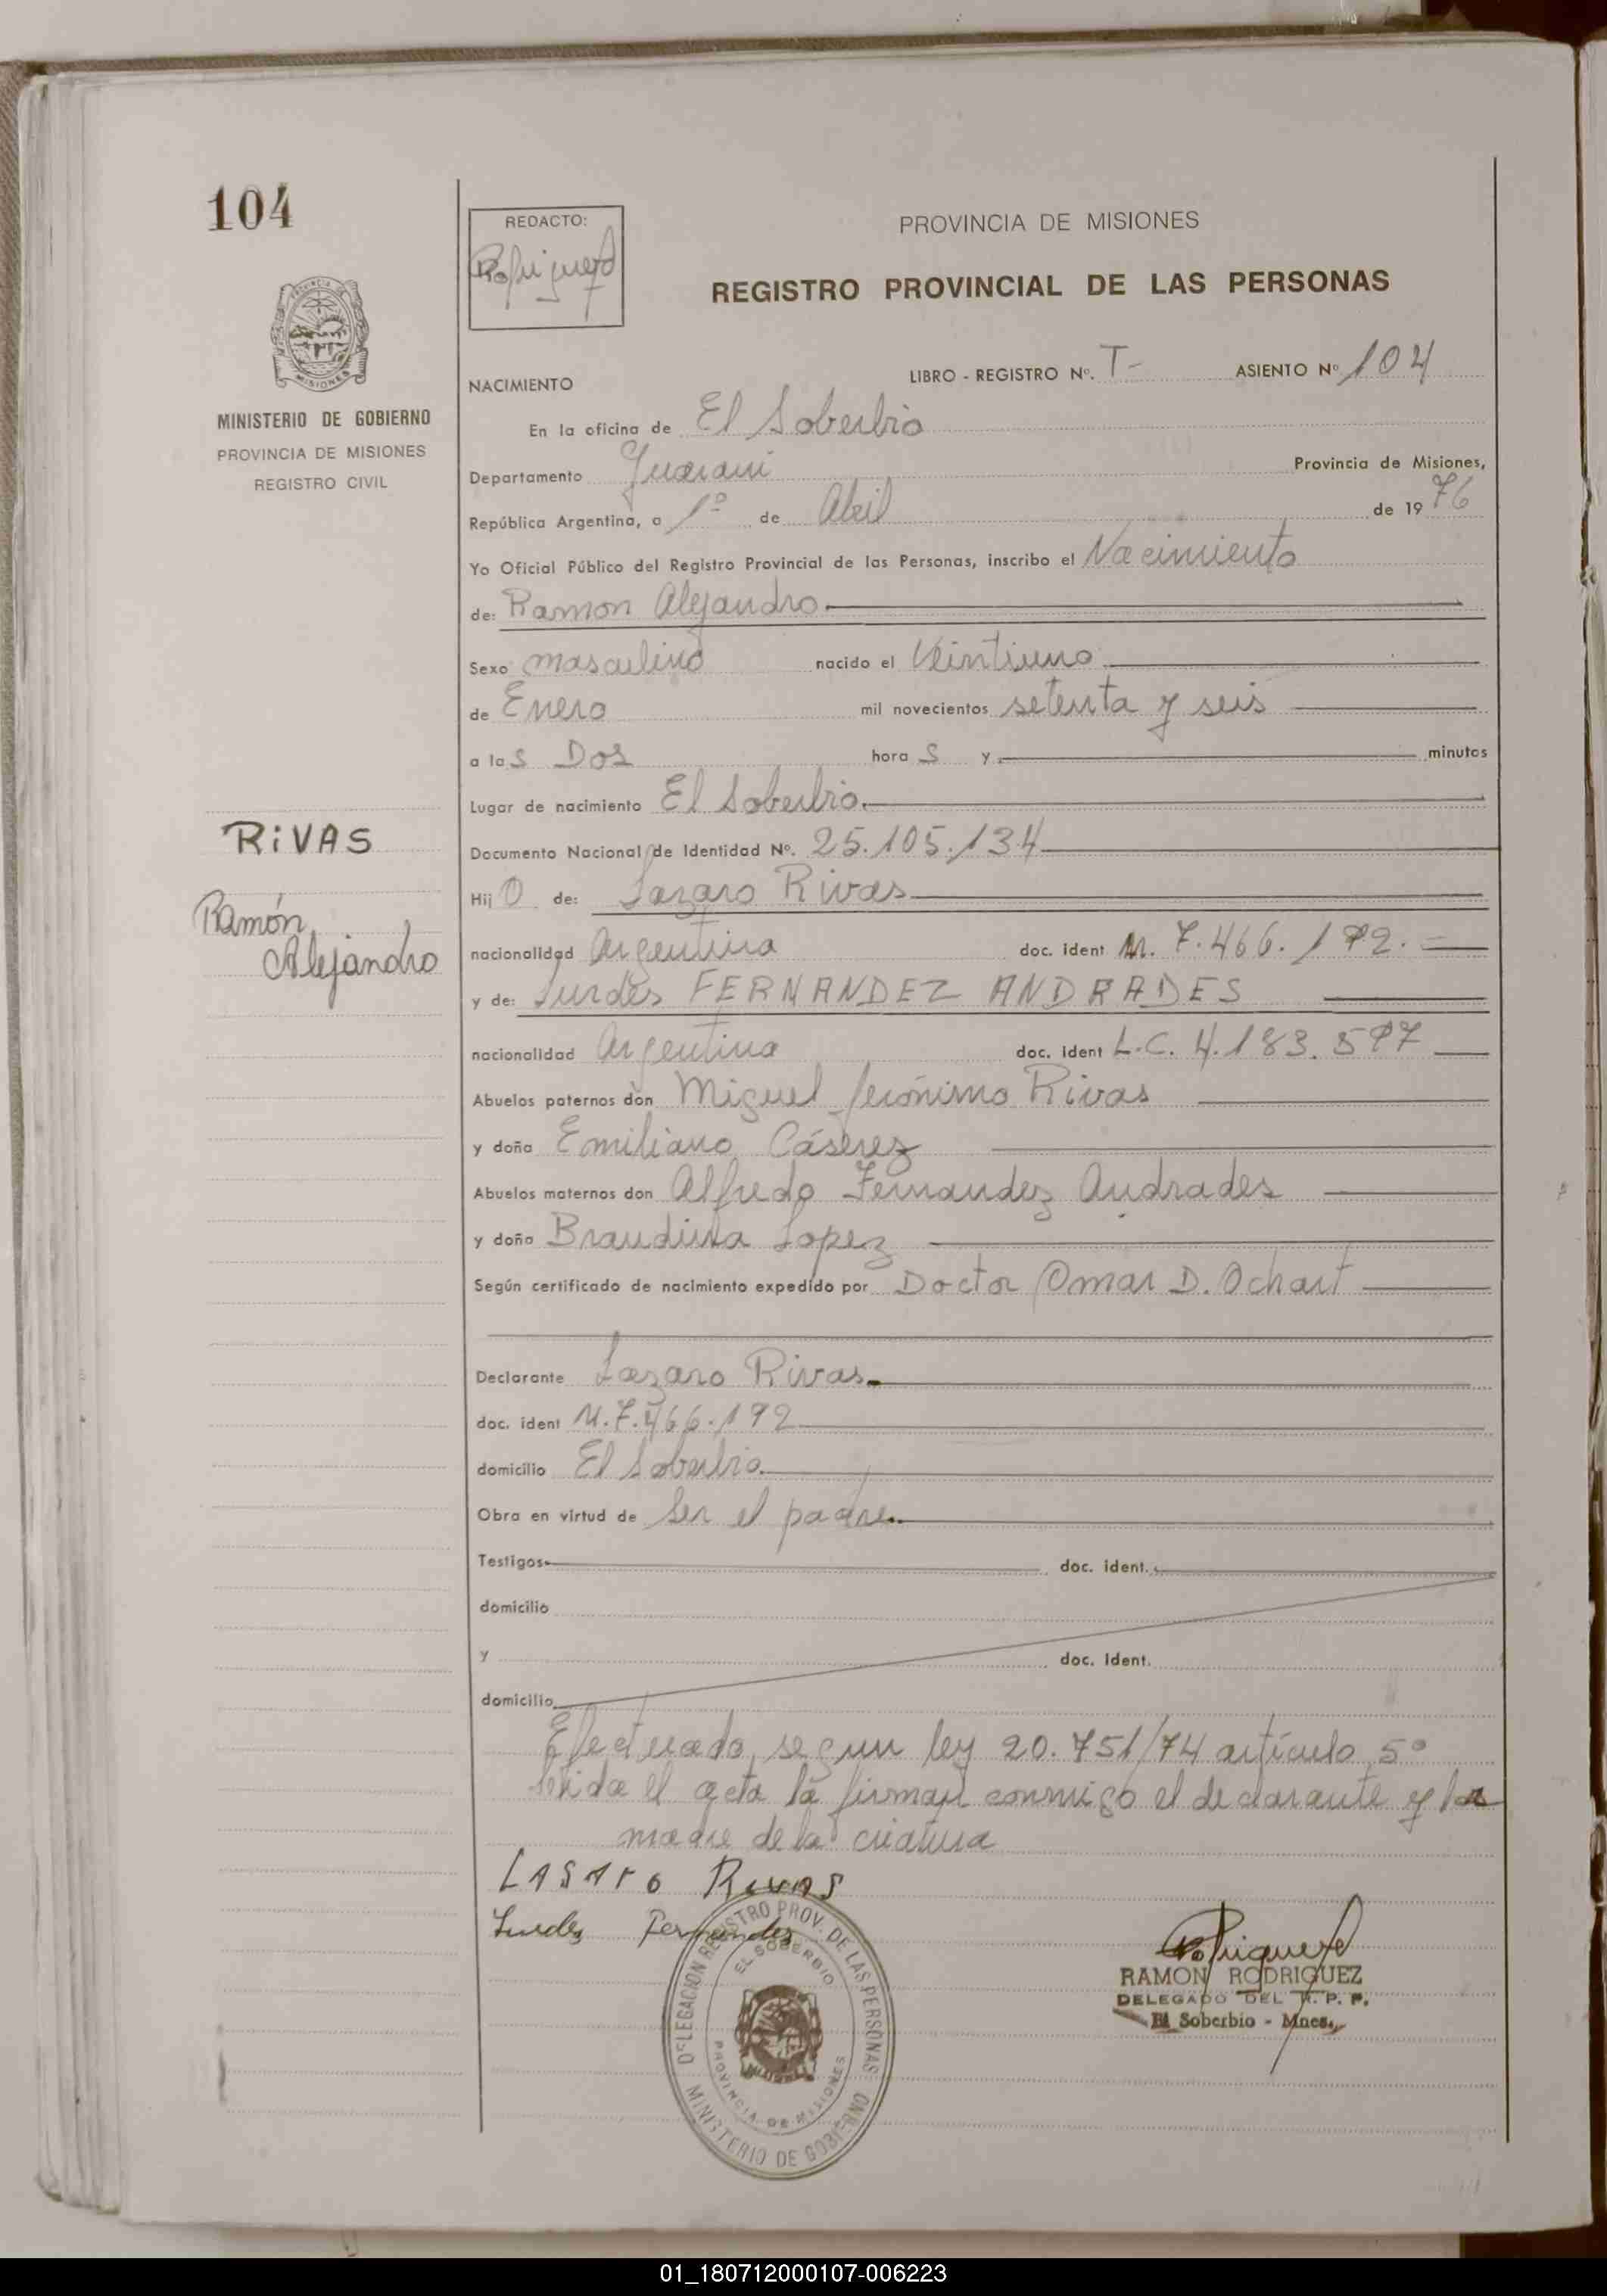 104
REDACTO:
PROVINCIA DE MISIONES
REGISTRO PROVINCIAL DE LAS PERSONAS
MISIONES
MINISTERIO DE GOBIERNO
PROVINCIA DE MISIONES
REGISTRO CIVIL
NACIMIENTO LIBRO - REGISTRO Nº. T- ASIENTO Nº 104
En la oficina de El Soberbio
Departamento Guarani Provincia de Misiones,
República Argentina, a 1º de Abril de 1976
Yo Oficial Público del Registro Provincial de las Personas, inscribo el Nacimiento
de: Ramon Alejandro
Sexo masculino nacido el Veintiuno
de Enero mil novecientos setenta y seis
a las Dos horas y minutos
Lugar de nacimiento El Soberbio
RiVAS
Ramón
Alejandro
Documento Nacional de Identidad Nº. 25.105.134
Hijo de: Lazaro Rivas
nacionalidad Argentina doc. ident M. 7.466.192.
y de: Lurdes FERNANDEZ ANDRADES
nacionalidad Argentina doc. ident L.C. 4.183.597
Abuelos paternos don Miguel Jerónimo Rivas
y doña Emiliana Cáserez
Abuelos maternos don Alfredo Fernandez Andrades
y doña Braudina Lopez
Según certificado de nacimiento expedido por Doctor Omar D. Ochart
Declarante Lazaro Rivas
doc. ident M.7.466.192
domicilio El Soberbio
Obra en virtud de Ser el padre
Testigos doc. ident.
domicilio
y doc. Ident.
domicilio
Efectuado, segun ley 20.751/74 artículo 5º
leida el acta la firman conmigo el declarante y la
madre de la criatura
LASAro Rivas
Lurdes Fernandes
DELEGACION REGISTRO PROV. DE LAS PERSONAS
EL SOBERBIO
PROVINCIA DE MISIONES
MINISTERIO DE GOBIERNO
RAMON RODRIGUEZ
DELEGADO DEL R. P. P.
El Soberbio - Mnes.
01_180712000107-006223